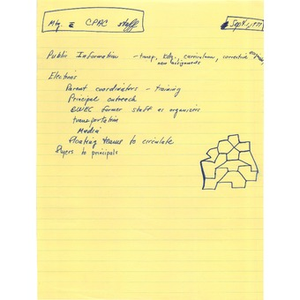 Mtg c̄ CPAC staff
Sept. 1, 1977
Public Information - transp., bldg., curriculum, corrective
new assignments
Elections
Parent coordinators - training
Principal outreach
CWEC former staff as organizers
transportation
Media
Floating teams to circulate
Flyers to principals